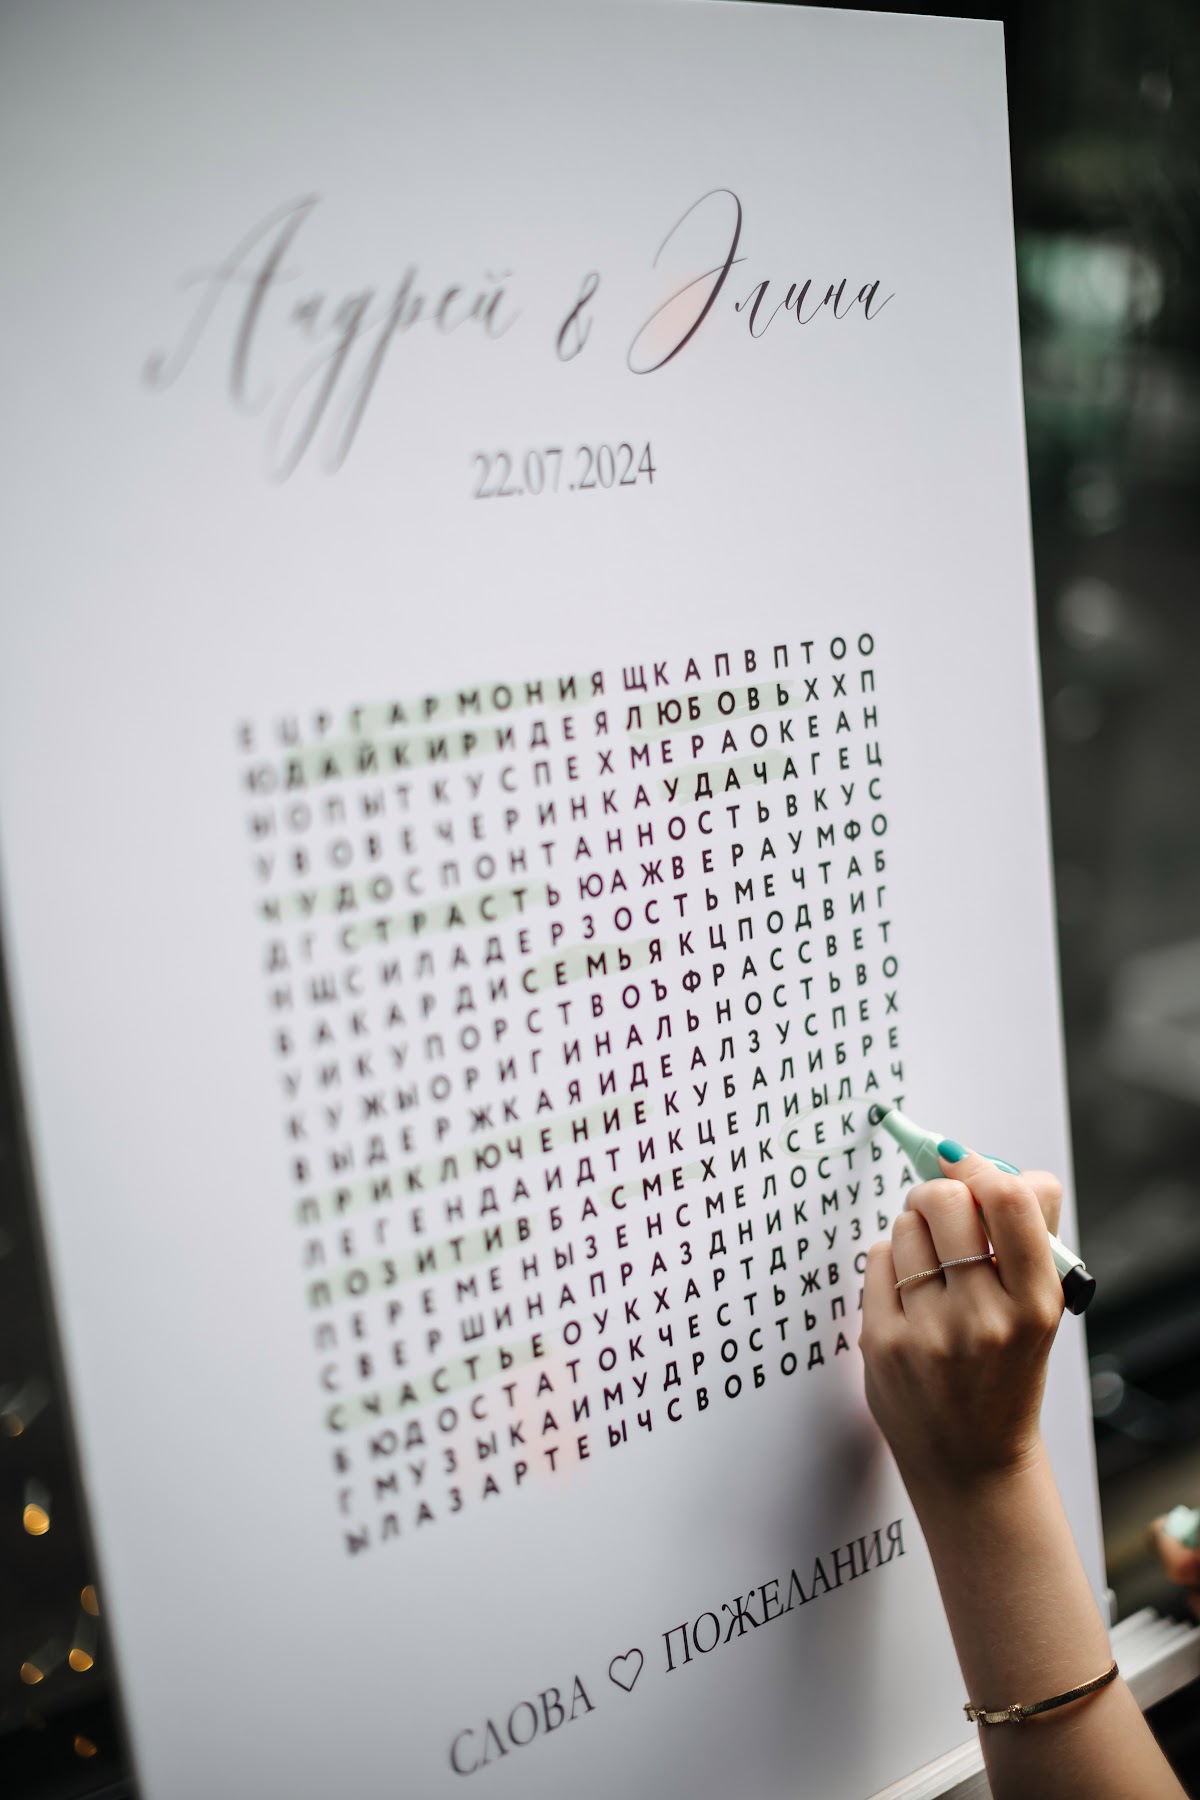 Андрей & Элина
22.07.2024
Е Щ Р Г А Р М О Н И Я Щ К А П В П Т О О
Ю Д А Й К И Р И Д Е Я Л Ю Б О В Ь Х Х П
Ы О П Ы Т К У С П Е Х М Е Р А О К Е А Н
У В О В Е Ч Е Р И Н К А У Д А Ч А Г Е Ц
Ч У Д О С П О Н Т А Н Н О С Т Ь В К У С
Д Г С Т Р А С Т Ь Ю А Ж В Е Р А У М Ф О
Н Щ С И Л А Д Е Р З О С Т Ь М Е Ч Т А Б
Б А К А Р Д И С Е М Ь Я К Ц П О Д В И Г
У И К У П О Р С Т В О Ъ Ф Р А С С В Е Т
К У Ж Ы О Р И Г И Н А Л Ь Н О С Т Ь В О
В Ы Д Е Р Ж К А Я И Д Е А Л З У С П Е Х
П Р И К Л Ю Ч Е Н И Е К У Б А Л И Б Р Е
Л Е Г Е Н Д А И Д Т И К Ц Е Л И Ы Л А Ч
П О З И Т И В Б А С М Е Х И К С Е К С Т
П Е Р Е М Е Н Ы З Е Н С М Е Л О С Т Ь
С В Е Р Ш И Н А П Р А З Д Н И К М У З А
С Ч А С Т Ь Е О У К Х А Р Т Д Р У З Ь
Б Ю Д О С Т А Т О К Ч Е С Т Ь Ж В О
Г М У З Ы К А И М У Д Р О С Т Ь П
Ы Л А З А Р Т Е Ы Ч С В О Б О Д А
СЛОВА ♡ ПОЖЕЛАНИЯ